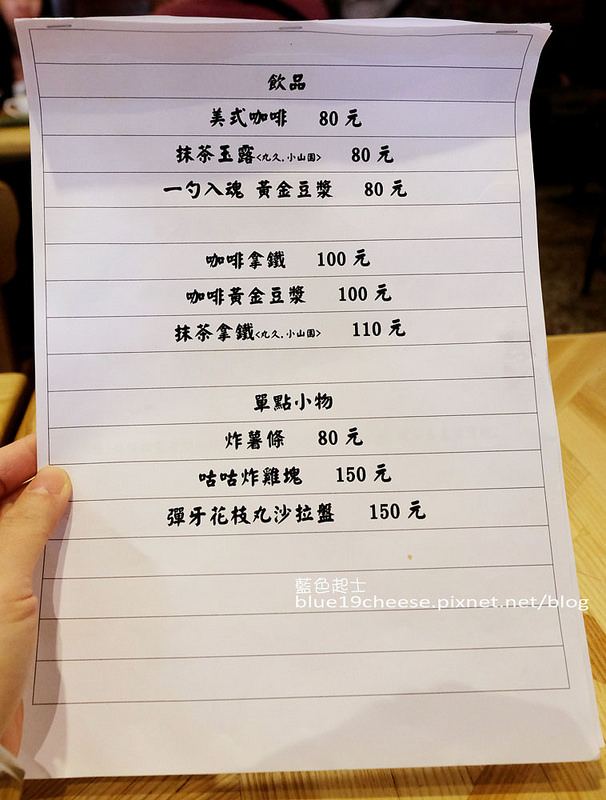 飲品
美式咖啡 80 元
抹茶玉露<丸久.小山園> 80 元
一勺入魂 黃金豆漿 80 元
咖啡拿鐵 100 元
咖啡黃金豆漿 100 元
抹茶拿鐵<丸久.小山園> 110 元
單點小物
炸薯條 80 元
咕咕炸雞塊 150 元
彈牙花枝丸沙拉盤 150 元
藍色起士
blue19cheese.pixnet.net/blog